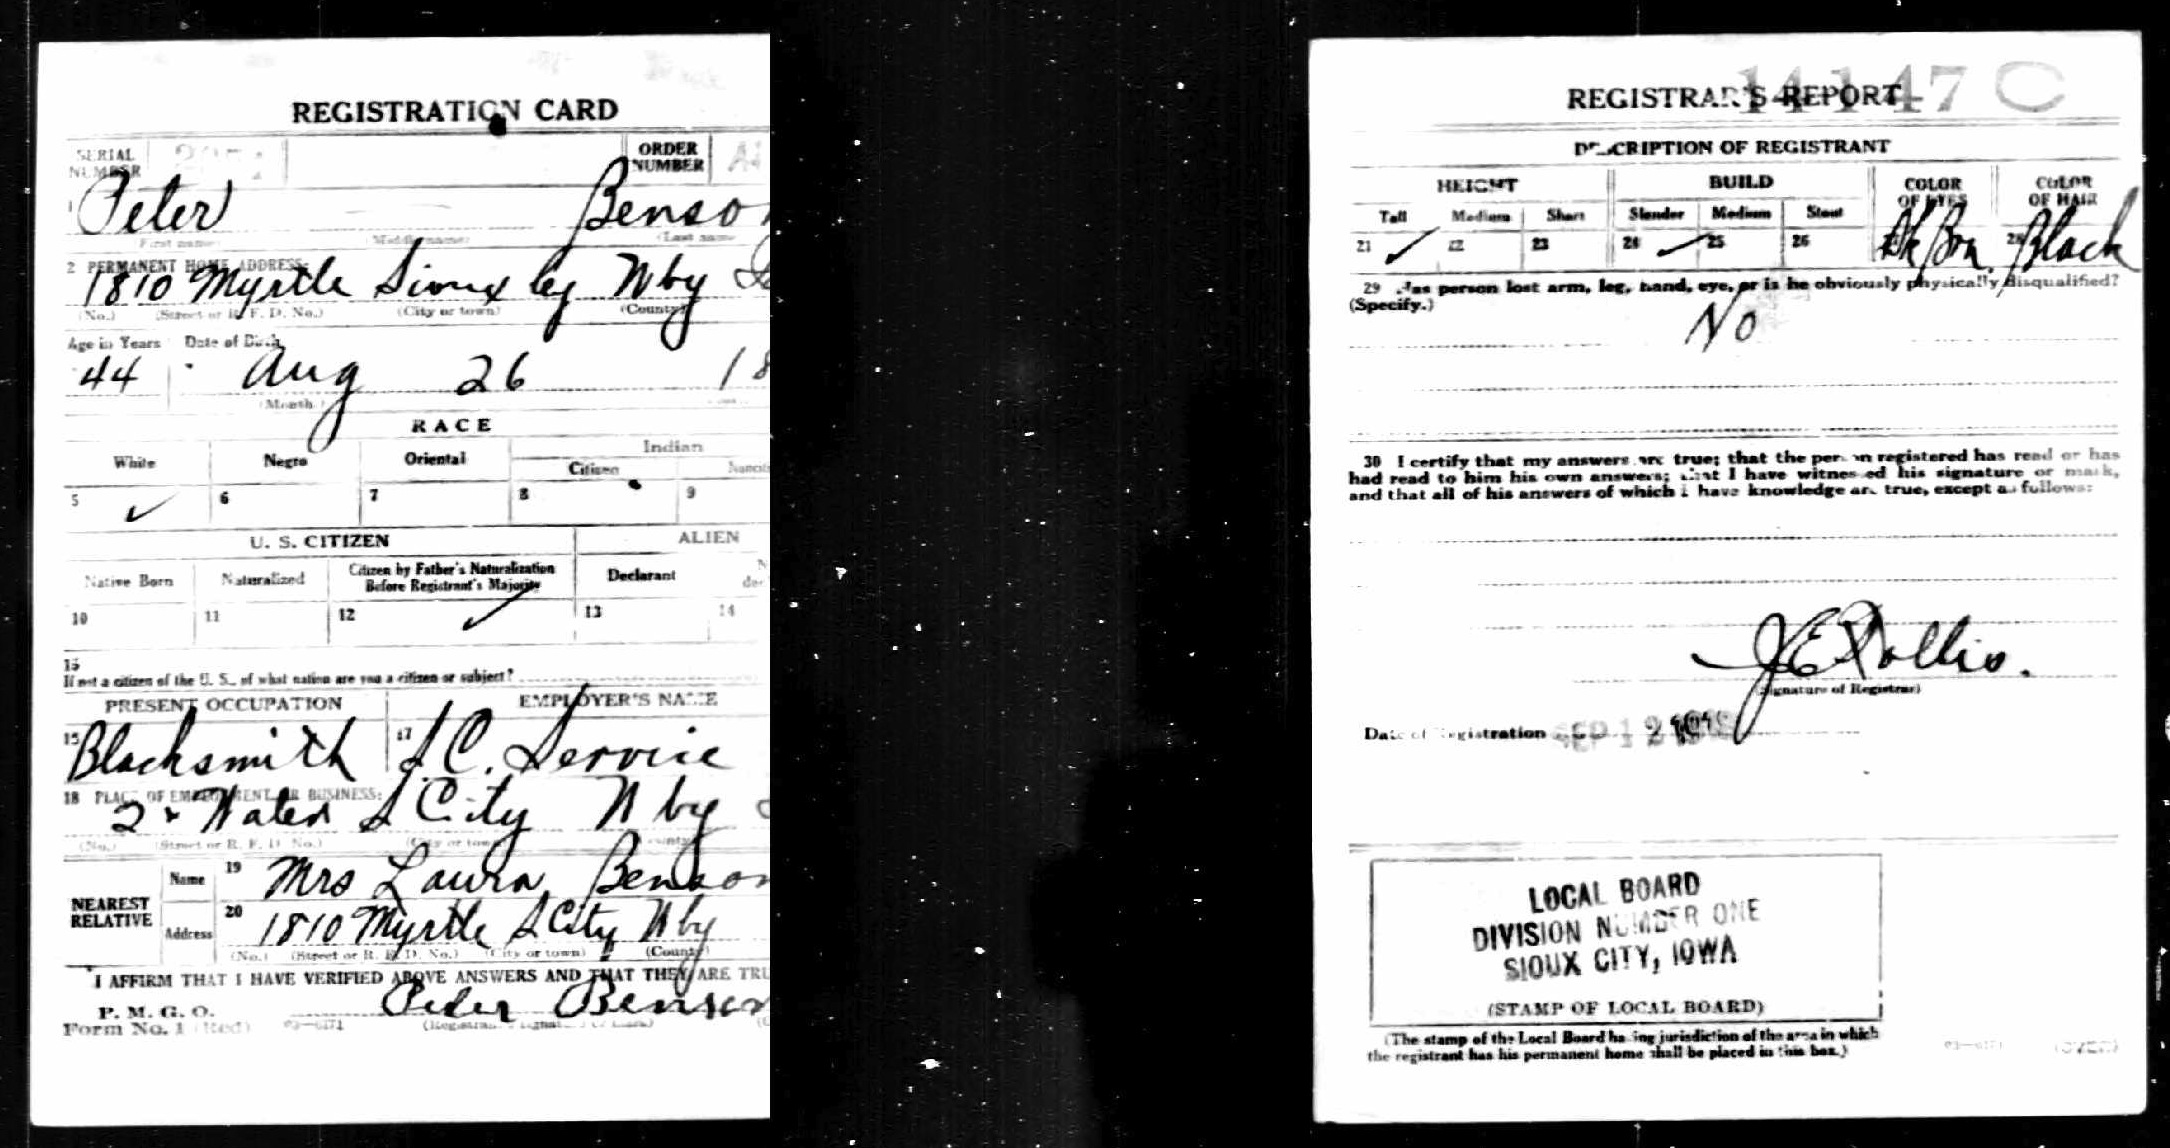 REGISTRATION CARD
SERIAL NUMBER ORDER NUMBER
1 Peter Benso
First name Middle name Last name
2 PERMANENT HOME ADDRESS:
1810 Myrtle Sioux Cy Wby
(No.) (Street or R. F. D. No.) (City or town) (County)
Age in Years Date of Birth
44 Aug 26 18
(Month.)
RACE
White Negro Oriental Indian
Citizen
5 ✓ 6 7 8 9
U. S. CITIZEN ALIEN
Native Born Naturalized Citizen by Father's Naturalization Before Registrant's Majority Declarant
10 11 12 ✓ 13 14
15
If not a citizen of the U. S., of what nation are you a citizen or subject?
PRESENT OCCUPATION EMPLOYER'S NAME
Blacksmith 17 S.C. Service
18 PLACE OF EMPLOYMENT OR BUSINESS:
2 & Water S City Wby
(No.) (Street or R. F. D. No.) (City or town) (County)
NEAREST RELATIVE Name 19 Mrs Laura Benson
Address 20 1810 Myrtle S City Wby
(No.) (Street or R. F. D. No.) (City or town) (County)
I AFFIRM THAT I HAVE VERIFIED ABOVE ANSWERS AND THAT THEY ARE TRU
P. M. G. O. Peter Benson
Form No. 1 (Red) 03—6171
REGISTRAR'S REPORT 14-1-47 C
DESCRIPTION OF REGISTRANT
HEIGHT BUILD COLOR OF EYES COLOR OF HAIR
Tall Medium Short Slender Medium Stout
21 ✓ 22 23 24 ✓ 25 26 Dk Brn. 28 Black
29 Has person lost arm, leg, hand, eye, or is he obviously physically disqualified?
(Specify.) No
30 I certify that my answers are true; that the person registered has read or has
had read to him his own answers; that I have witnessed his signature or mark,
and that all of his answers of which I have knowledge are true, except as follows:
(Signature of Registrar)
Date of Registration SEP 12 1918
LOCAL BOARD
DIVISION NUMBER ONE
SIOUX CITY, IOWA
(STAMP OF LOCAL BOARD)
(The stamp of the Local Board having jurisdiction of the area in which
the registrant has his permanent home shall be placed in this box.)
03—6171 (OVER)